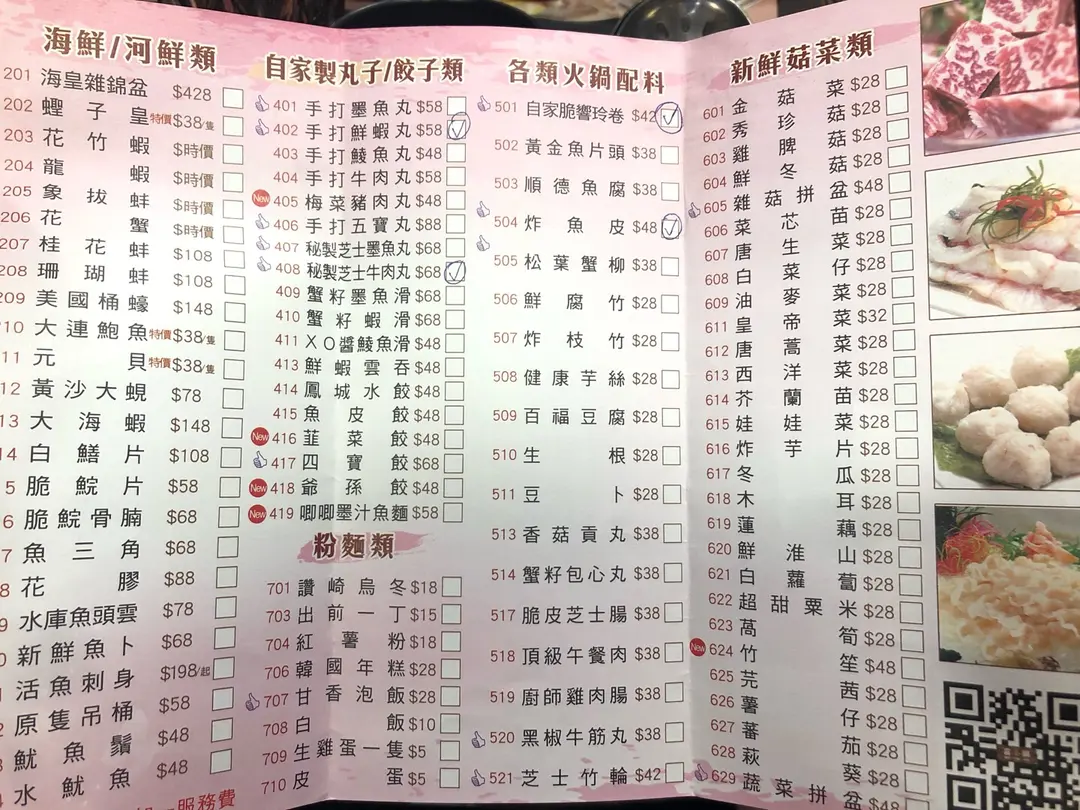 海鮮/河鮮類
201 海皇雜錦盆 $428
202 蟶子皇 特價$38/隻
203 花竹蝦 $時價
204 龍蝦 $時價
205 象拔蚌 $時價
206 花蟹 $時價
207 桂花蚌 $108
208 珊瑚蚌 $108
209 美國桶蠔 $148
10 大連鮑魚 特價$38/隻
11 元貝 特價$38/隻
12 黃沙大蜆 $78
13 大海蝦 $148
14 白鱔片 $108
5 脆鯇片 $58
6 脆鯇骨腩 $68
7 魚三角 $68
8 花膠 $88
9 水庫魚頭雲 $78
0 新鮮魚卜 $68
活魚刺身 $198/起
原隻吊桶 $58
魷魚鬚 $48
水魷魚 $48
服務費
自家製丸子/餃子類
401 手打墨魚丸 $58
402 手打鮮蝦丸 $58
403 手打鯪魚丸 $48
404 手打牛肉丸 $58
New 405 梅菜豬肉丸 $48
406 手打五寶丸 $88
407 秘製芝士墨魚丸 $68
408 秘製芝士牛肉丸 $68
409 蟹籽墨魚滑 $68
410 蟹籽蝦滑 $68
411 XO醬鯪魚滑 $48
413 鮮蝦雲吞 $48
414 鳳城水餃 $48
415 魚皮餃 $48
New 416 韮菜餃 $48
417 四寶餃 $68
New 418 爺孫餃 $48
New 419 唧唧墨汁魚麵 $58
粉麵類
701 讚崎烏冬 $18
703 出前一丁 $15
704 紅薯粉 $18
706 韓國年糕 $28
707 甘香泡飯 $28
708 白飯 $10
709 生雞蛋一隻 $5
710 皮蛋 $5
各類火鍋配料
501 自家脆響玲卷 $42
502 黃金魚片頭 $38
503 順德魚腐 $38
504 炸魚皮 $48
505 松葉蟹柳 $38
506 鮮腐竹 $28
507 炸枝竹 $28
508 健康芋絲 $28
509 百福豆腐 $28
510 生根 $28
511 豆卜 $28
513 香菇貢丸 $38
514 蟹籽包心丸 $38
517 脆皮芝士腸 $38
518 頂級午餐肉 $38
519 廚師雞肉腸 $38
520 黑椒牛筋丸 $38
521 芝士竹輪 $42
新鮮菇菜類
601 金菇菜 $28
602 秀珍菇 $28
603 雞脾菇 $28
604 鮮冬菇 $28
605 雜菇拼盆 $48
606 菜芯苗 $28
607 唐生菜 $28
608 白菜仔 $28
609 油麥菜 $28
611 皇帝菜 $32
612 唐蒿菜 $28
613 西洋菜 $28
614 芥蘭苗 $28
615 娃娃菜 $28
616 炸芋片 $28
617 冬瓜 $28
618 木耳 $28
619 蓮藕 $28
620 鮮淮山 $28
621 白蘿蔔 $28
622 超甜粟米 $28
623 萵筍 $28
New 624 竹笙 $48
625 芫茜 $28
626 薯仔 $28
627 蕃茄 $28
628 萩葵 $28
629 蔬菜拼盆 $48